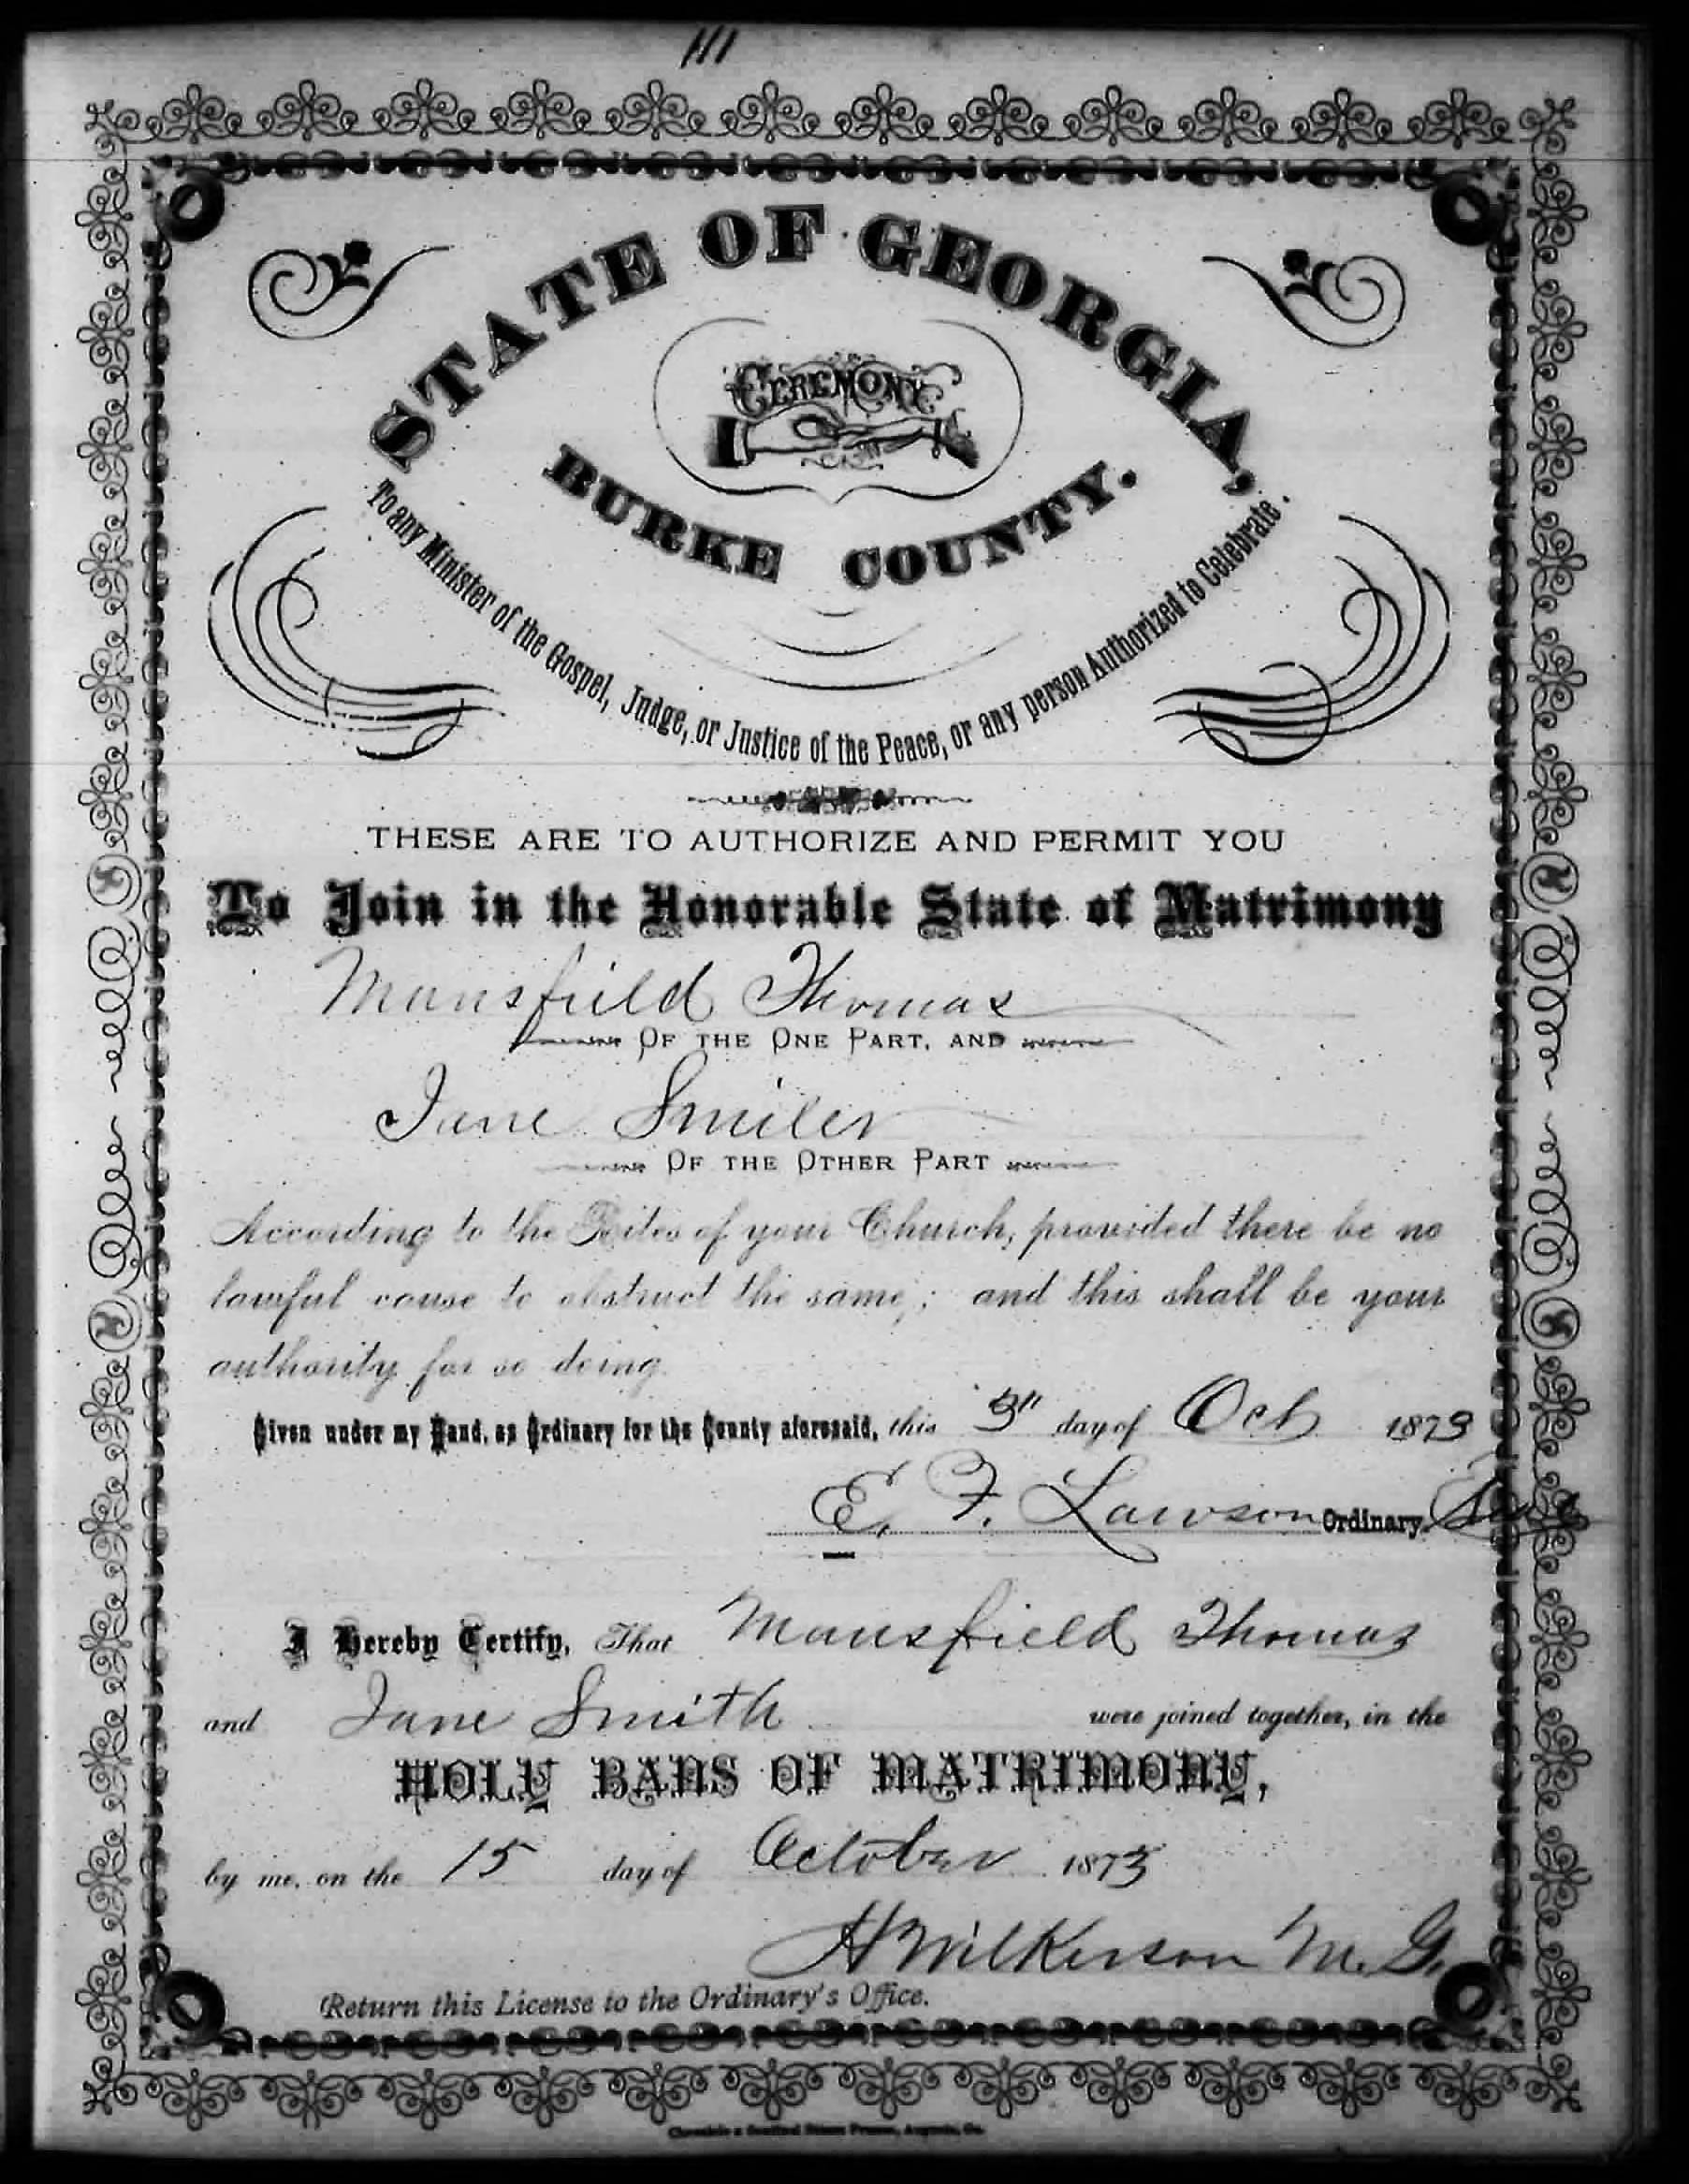 111
STATE OF GEORGIA,
CEREMONY
BURKE COUNTY.
To any Minister of the Gospel, Judge, or Justice of the Peace, or any person Authorized to Celebrate.
THESE ARE TO AUTHORIZE AND PERMIT YOU
To Join in the Honorable State of Matrimony
Mansfield Thomas
OF THE ONE PART, AND
Jane Smiler
OF THE OTHER PART
According to the Rites of your Church, provided there be no
lawful cause to obstruct the same; and this shall be your
authority for so doing.
Given under my Hand, as Ordinary for the County aforesaid, this 3" day of Oct 1873
E. F. Lawson Ordinary.
I Hereby Certify, That Mansfield Thomas
and Jane Smith were joined together, in the
HOLY BANS OF MATRIMONY,
by me, on the 15 day of October 1873
H Wilkerson M. G.
Return this License to the Ordinary's Office.
Chronicle & Sentinel Steam Presses, Augusta, Ga.